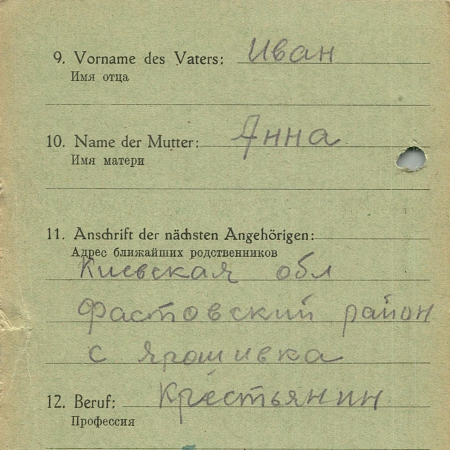 9. Vorname des Vaters: Иван
Имя отца
10. Name der Mutter: Анна
Имя матери
11. Anschrift der nächsten Angehörigen:
Адрес ближайших родственников
Киевская обл
Фастовский район
с Ярошивка
12. Beruf: Крестьянин
Профессия